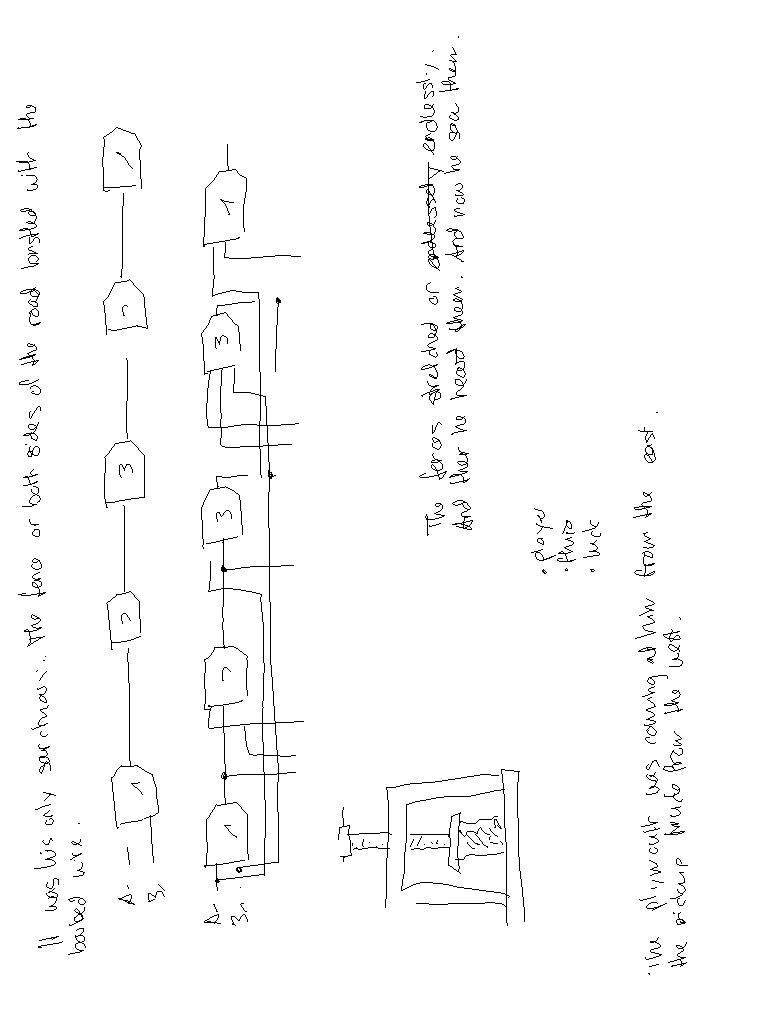 It was his only sanctuary. The fence on both sides of the road bristled with the
barbed wire.
A-
B,
1
2
3
2
1
A-
B,
1
2
3
3
1
The fences stretched on endlessly endlessly.
And then he heard them. And now he saw them.
• player
• fluid
• luck
The plymouth was coming at him from the east.
the pickup truck from the west.